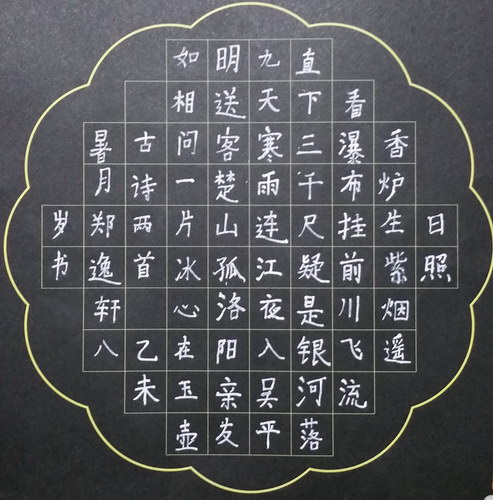 日照
香炉生紫烟遥
看瀑布挂前川飞流
直下三千尺疑是银河落
九天寒雨连江夜入吴平
明送客楚山孤洛阳亲友
如相问一片冰心在玉壶
古诗两首 乙未
暑月郑逸轩八
岁书